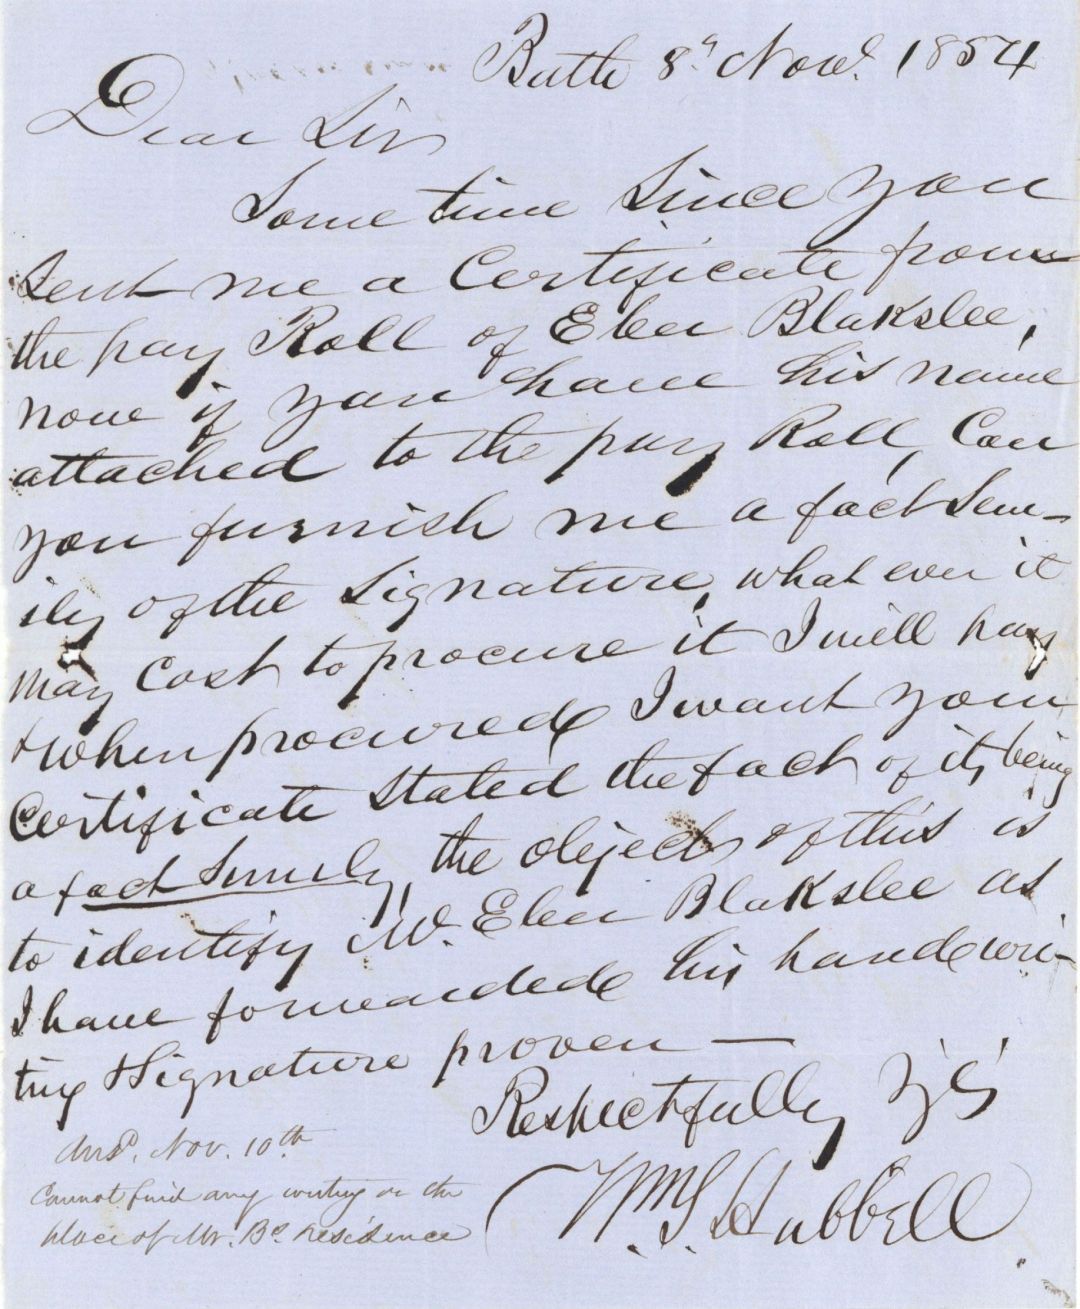 Bath 8th Novr. 1854
Dear Sir
Some time Since you
Sent me a Certificate from
the pay Roll of Eber Blakslee,
now if you have his name
attached to the pay Roll, Can
you furnish me a fact Sem-
ily of the Signature, what ever it
may Cost to procure it I will pay
& when procured I want your
Certificate Stated the fact of its being
a fact Simily, the object of this is
to identify Mr. Eber Blakslee as
I have forwarded his hand wri-
ting & Signature proven —
Respectfully Y's
Wm. S. Hubbell
Ansd. Nov. 10th
Cannot find any writing or the
place of Mr. Bs. residence